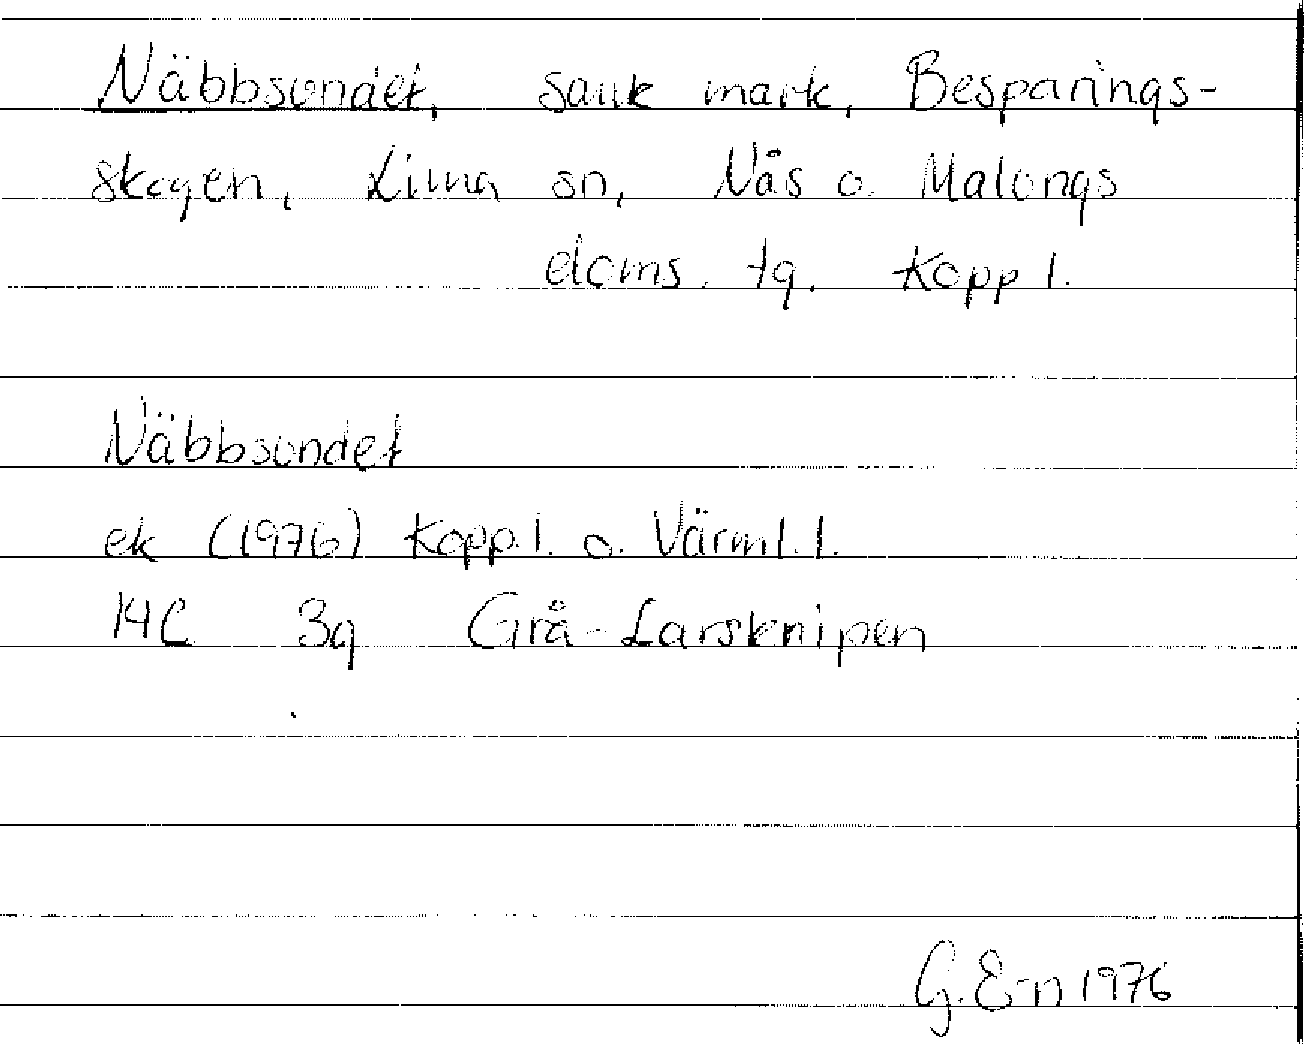 Näbbsundet, sank mark, Besparings-
skogen, Lima sn, Nås o. Malungs
doms. tg. Kopp l.
Näbbsundet
ek (1976) Kopp.l. o. Värml.l.
14C 3g Grå-Larsknipen
G. E-n 1976